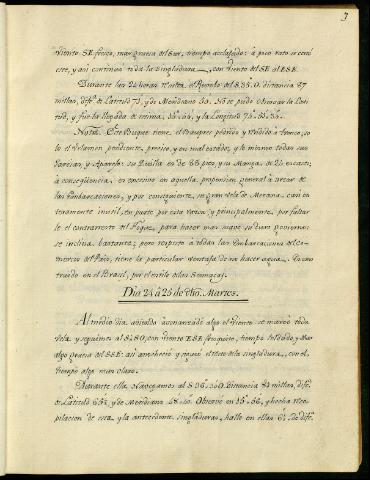 7
viento SE fresco, mar gruesa del Sur, tiempo acelajado: á poco rato se cerró
este, y asi continuó toda la singladura, con viento del SE al ESE.
Durante las 24 horas Navegᵉ el Rumbo del S 35° O. distancia 87
millas, difᵃ de Latitud 71, y de Meridiano 50. No se pudo observar la Lati-
tud, y fue la llegada de estima, 35..44, y la Longitud
Nota. Este Buque tiene el Bauprés podrido y rendido á tronco, so-
lo el Velamen pendiente, preciso, y en mal estado; y lo mismo todas sus
Jarcias, y Aparejo: su Quilla es de 68 pies, y su Manga de 20 escasos;
á consequencia, es excesivo en aquella, propension general á arcar de
las Embarcaciones, y por consiguiente, su gran vela de Mesana casi en-
teramente inutil, en parte por esta razon, y principalmente por faltar
le el contrarresto del Foque, para hacer mas suave su
se inclina bastante; pero respecto á todas las Embarcaciones del Co-
mercio del Pais, tiene la particular ventaja de no hacer agua. Es con-
truido en el Brasil, por el estilo de las Sumacas.
Dia 24 á 25 de dho. Martes.
Al medio dia abonanzado algo el viento se mareó toda
vela y seguimos al S2SO, con viento ESE fresquito, tiempo toldado, y Mar
algo gruesa del SSE: asi anocheció y siguió el resto de la singladura, con el
tiempo algo mas claro.
Durante ella Navegamos al S 36..30 O. Distancia 81 millas, difᵃ
de Latitud 65½ y de Meridiano 48..10. Observé en 35..56, y hecha Reco-
pilacion de esta, y la antecedente singladuras, hallo en ellas 61. de difᵃ